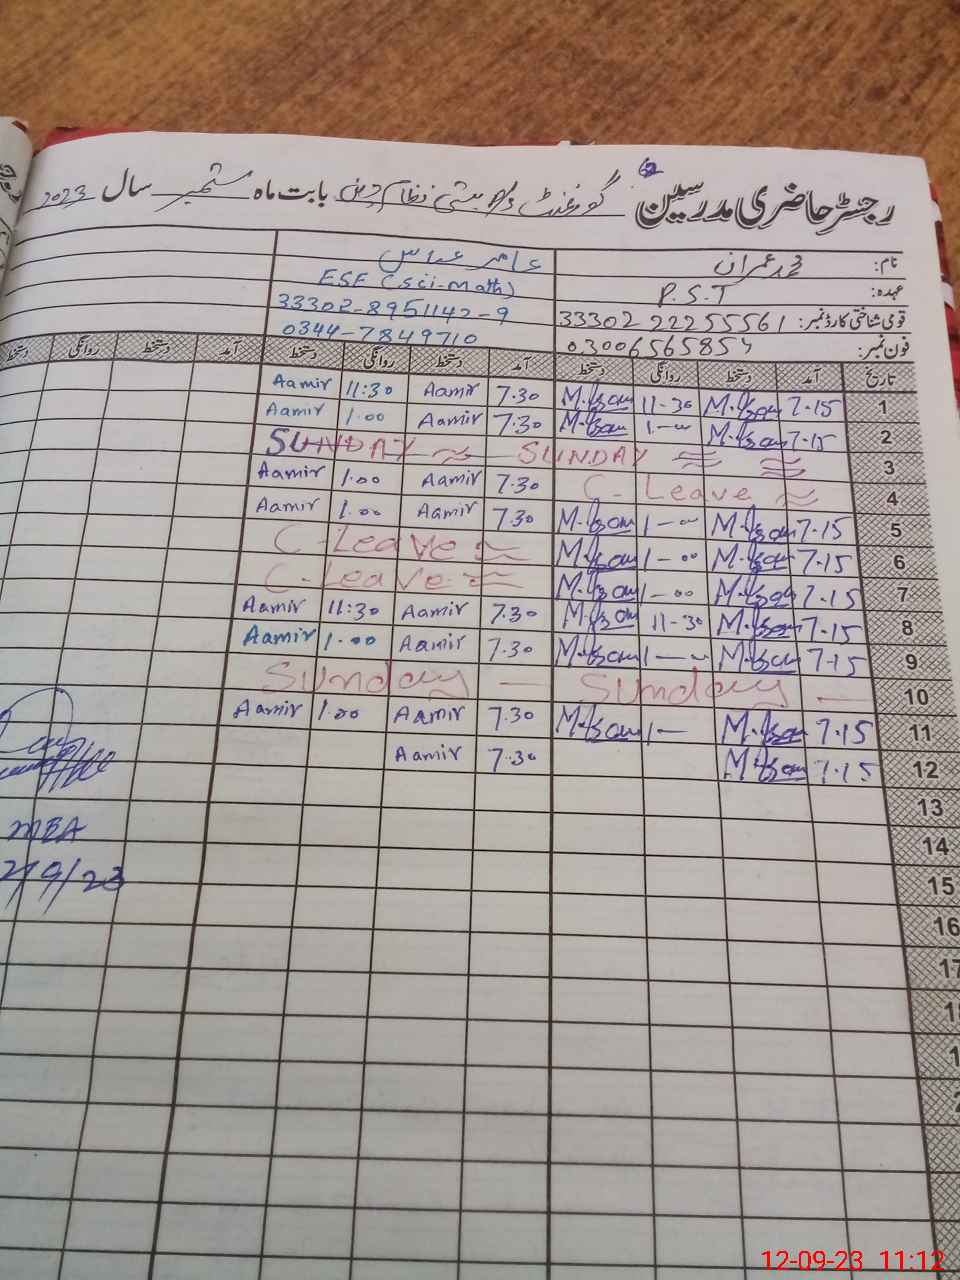 رجسٹر حاضری مدرسین گورنمنٹ بستی نظام بابت ماہ ستمبر سال 2023
نام: محمد عمران عامر عباس
عہدہ: P.S.T ESE (Sci-Math)
قومی شناختی کارڈ نمبر: 33302 22255561 33302-8951142-9
فون نمبر: 0344-7849710
تاریخ آمد دستخط روانگی دستخط آمد دستخط روانگی دستخط آمد دستخط روانگی دستخط
1 7.15 11-30 7.30 Aamir 11:30 Aamir
2 7.15 1-00 7.30 Aamir 1.00 Aamir
3 SUNDAY SUNDAY
4 C-Leave 7.30 Aamir 1.00 Aamir
5 7.15 1-00 7.30 Aamir 1.00 Aamir
6 7.15 1-00 C-Leave
7 7.15 1-00 C-Leave
8 7.15 11-30 7.30 Aamir 11:30 Aamir
9 7.15 1- 7.30 Aamir 1.00 Aamir
10 Sunday Sunday
11 7.15 1- 7.30 Aamir 1.00 Aamir
12 7.15 7.30 Aamir
13
14
15
16
MEA
2/9/23
12-09-23 11:12